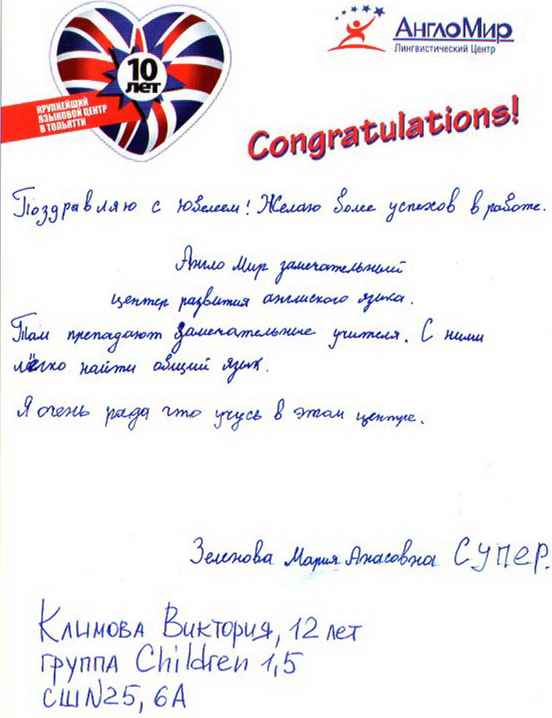 10
лет
КРУПНЕЙШИЙ
ЯЗЫКОВОЙ ЦЕНТР
В ТОЛЬЯТТИ
АнглоМир
Лингвистический Центр
Congratulations!
Поздравляю с юбелеем! Желаю более успехов в работе.
Англо Мир замечательный
центер развития англиского языка.
Там препадают замечательные учителя. С ними
лёгко найти общий язык.
Я очень рада что учусь в этом центре.
Зеленова Мария Анасовна СУПЕР.
Климова Виктория, 12 лет
группа Children 1,5
СШN25, 6А